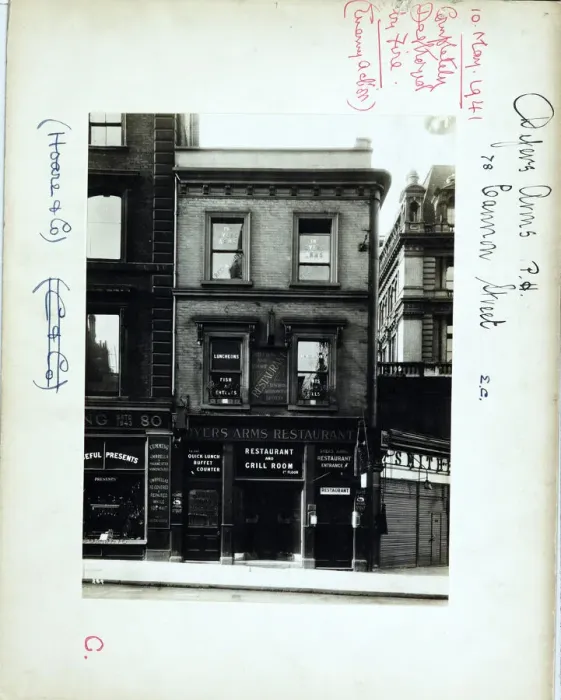 10. May. 1941
Completely
Destroyed
by Fire.
(Enemy action)
Dyers Arms P.H.
78 Cannon Street
E.C.
(Hoare & Co)
(C & Co)
LUNCHEONS
FISH
RESTAURANT
NG
80
YERS ARMS RESTAURANT
EFUL PRESENTS
PRESENTS
QUICK LUNCH
BUFFET
COUNTER
RESTAURANT
AND
GRILL ROOM
1ST FLOOR
RESTAURANT
ENTRANCE
RESTAURANT
UMBRELLAS
RE-COVERED
REPAIRED
WHILE
C.